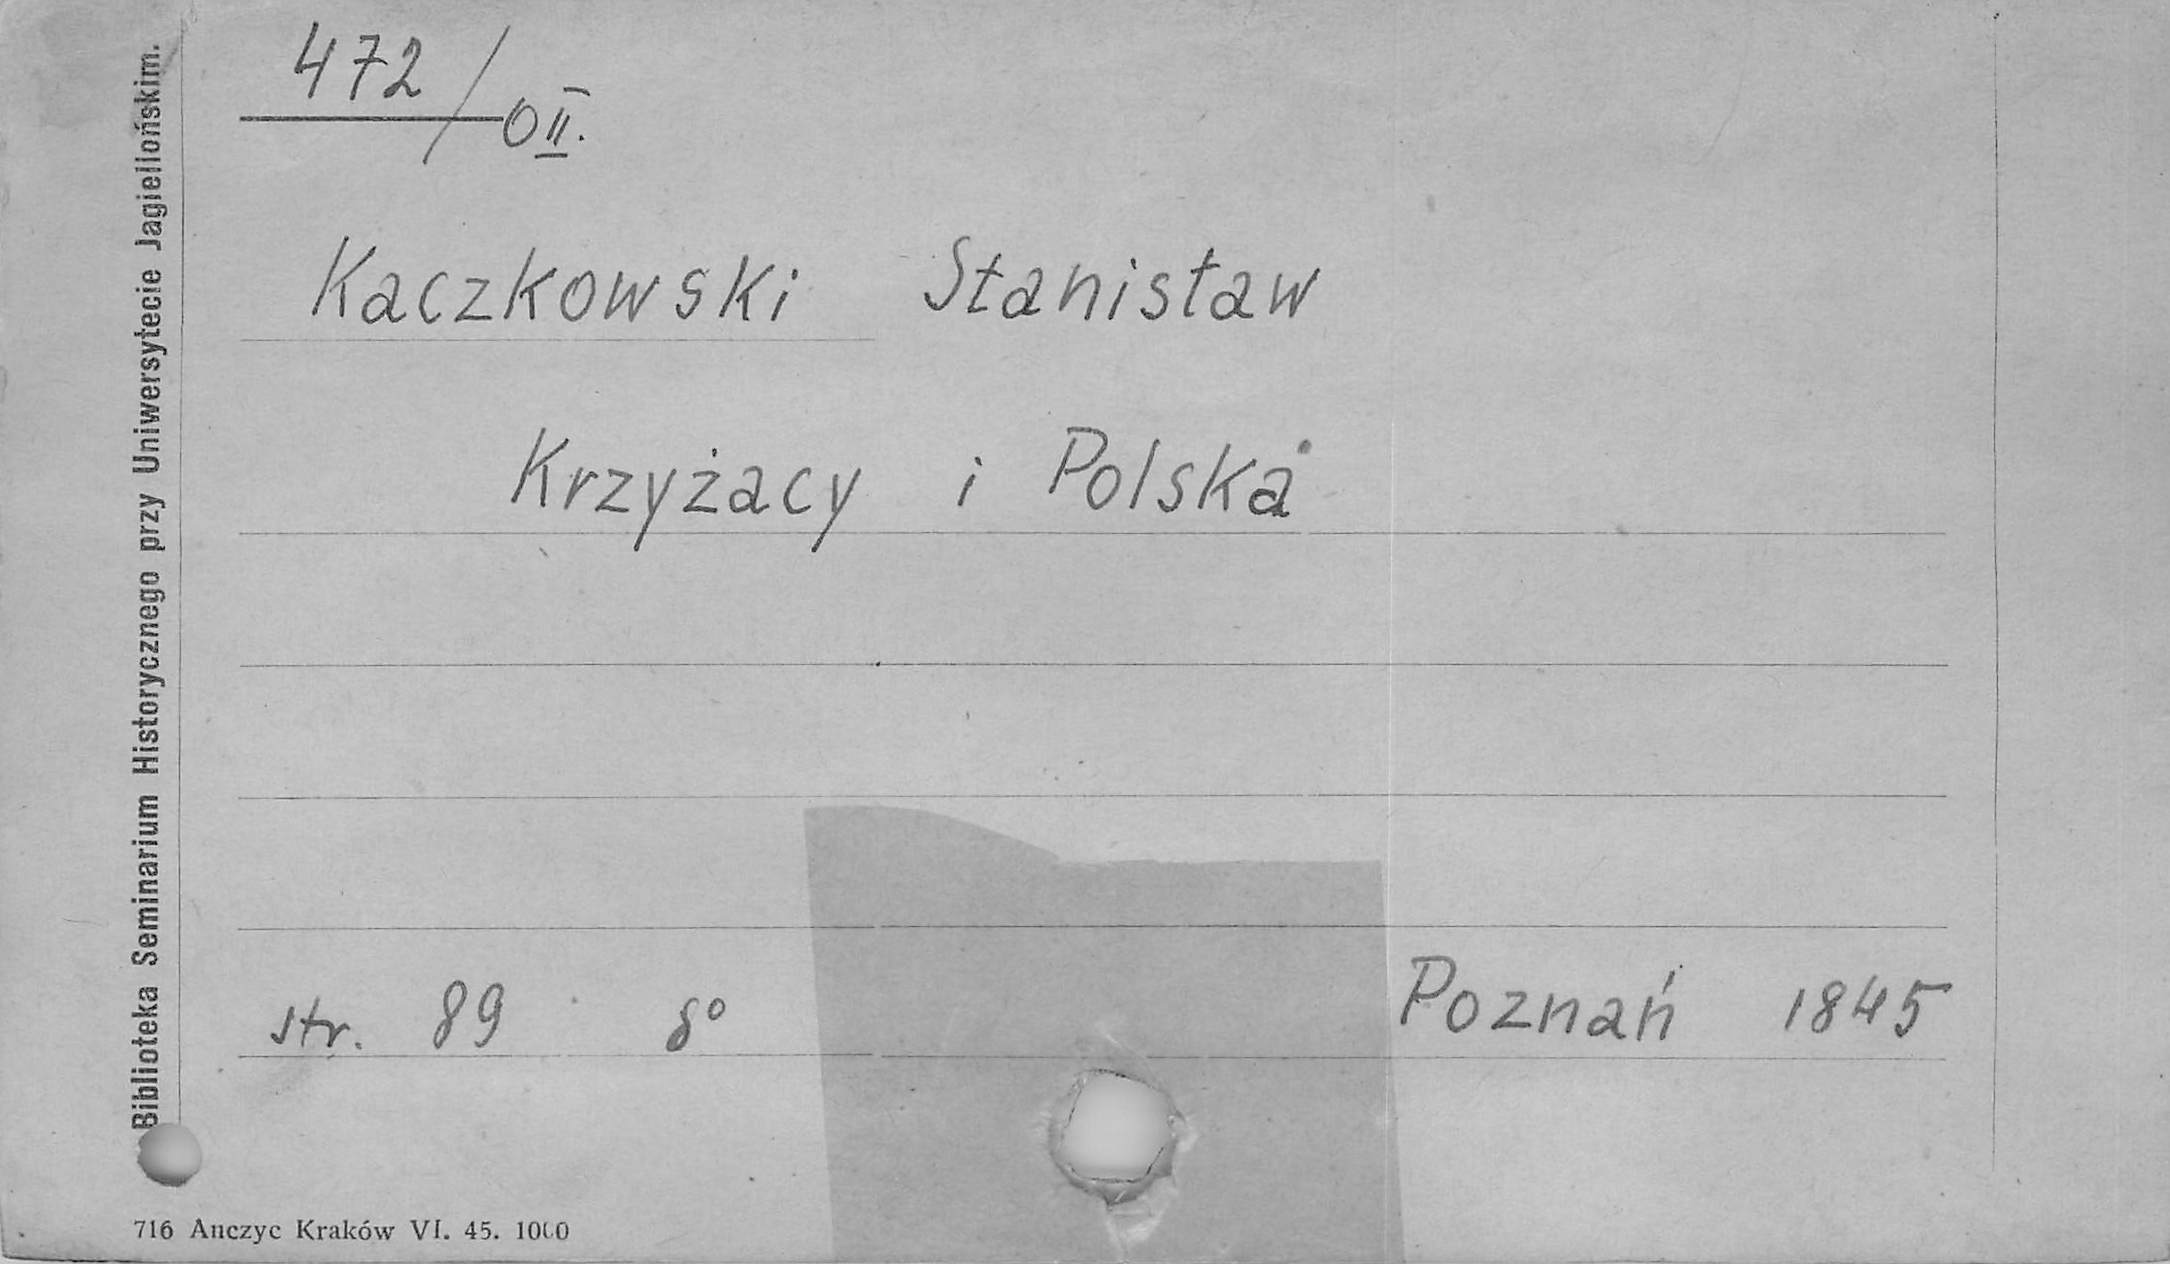 472/OII.
Kaczkowski Stanisław
Krzyżacy i Polska
str. 89 8°
Poznań 1845
Biblioteka Seminarium Historycznego przy Uniwersytecie Jagiellońskim.
716 Anczyc Kraków VI. 45. 1000